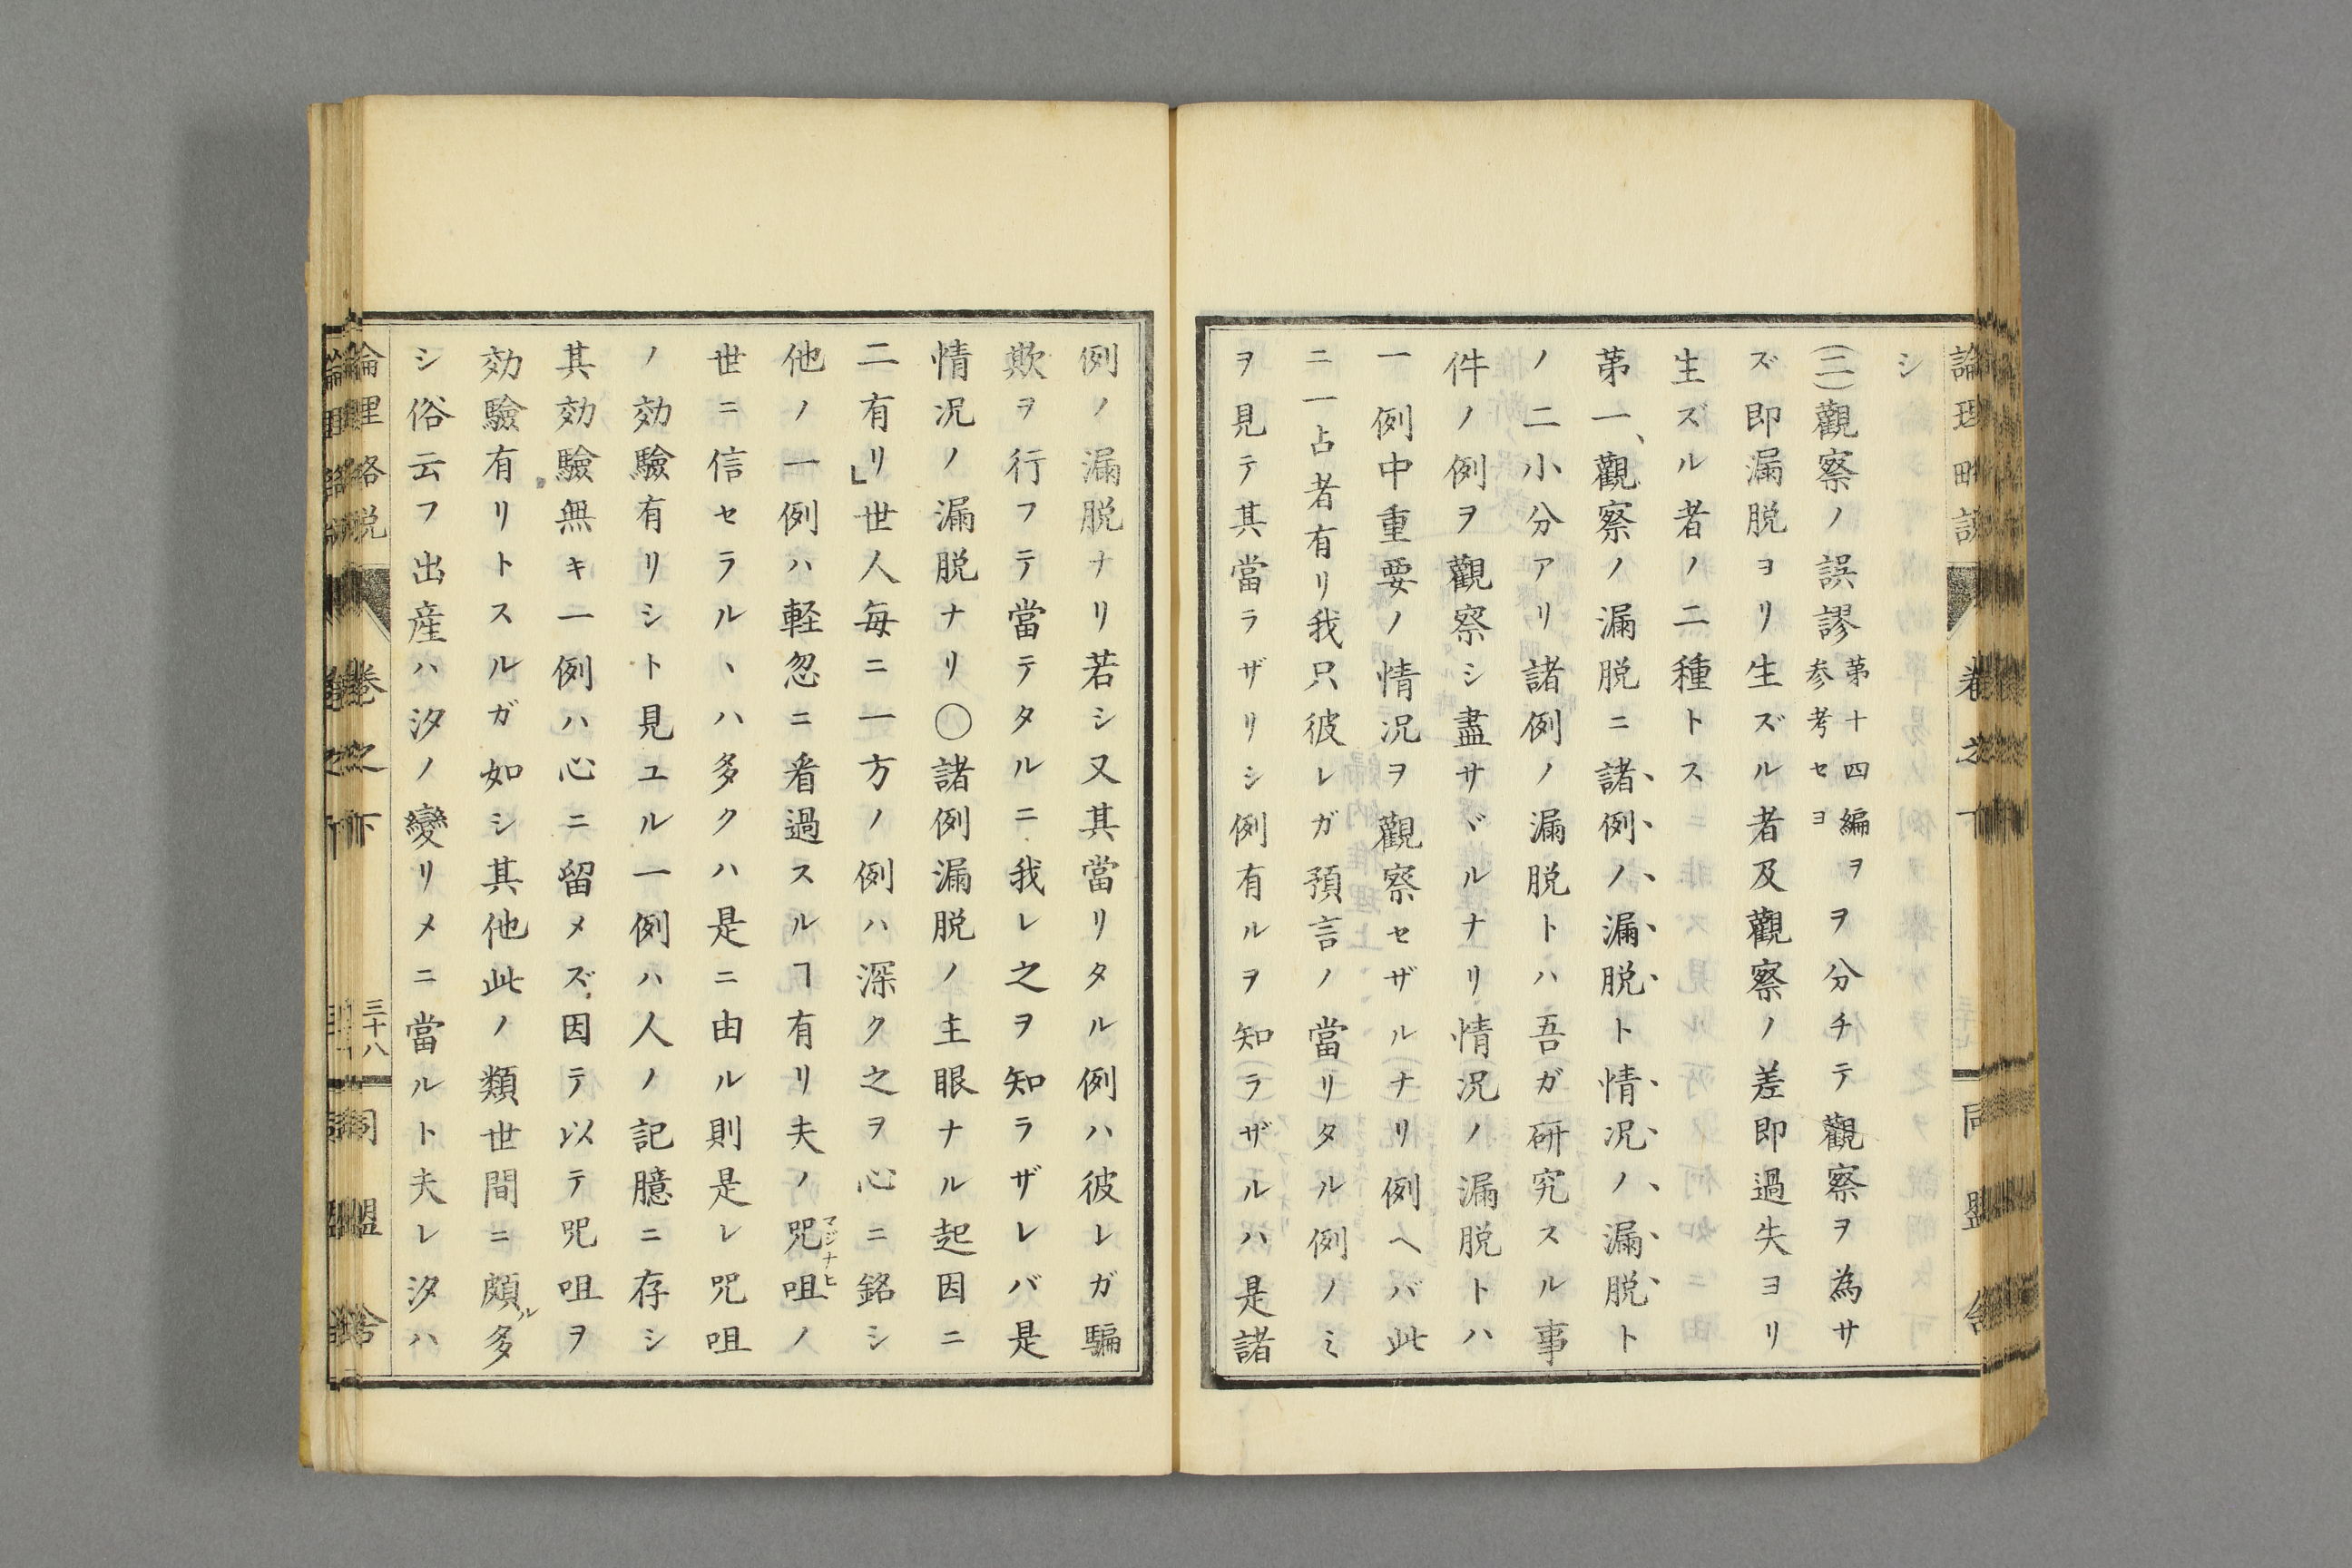 シ
(二)觀察ノ誤謬第十四編ヲ参考セヨヲ分チテ觀察ヲ為サ
ズ即漏脱ヨリ生ズル者及觀察ノ差即過失ヨリ
生ズル者ノ二種トス
第一、觀察ノ漏脱ニ諸例ノ漏脱ト情況ノ漏脱ト
ノ二小分アリ諸例ノ漏脱トハ吾ガ研究スル事
件ノ例ヲ觀察シ盡サヾルナリ情況ノ漏脱トハ
一例中重要ノ情況ヲ觀察セザルナリ例ヘバ此
ニ一占者有リ我只彼レガ預言ノ當リタル例ノミ
ヲ見テ其當ラザリシ例有ルヲ知ラザルハ是諸
例ノ漏脱ナリ若シ又其當リタル例ハ彼レガ騙
欺ヲ行フテ當テタルニ我レ之ヲ知ラザレバ是
情況ノ漏脱ナリ〇諸例漏脱ノ主眼ナル起因ニ
二有リ」世人毎ニ一方ノ例ハ深ク之ヲ心ニ銘シ
他ノ一例ハ軽忽ニ看過スルヿ有リ夫ノ咒咀マジナヒノ
世ニ信セラルヽハ多クハ是ニ由ル則是レ咒咀
ノ効驗有リシト見ユル一例ハ人ノ記臆ニ存シ
其効驗無キ一例ハ心ニ留メズ因テ以テ咒咀ヲ
効驗有リトスルガ如シ其他此ノ類世間ニ頗ル多
シ俗云フ出産ハ汐ノ變リメニ當ルト夫レ汐ハ
論理略説
卷之下
三十八
同盟舎